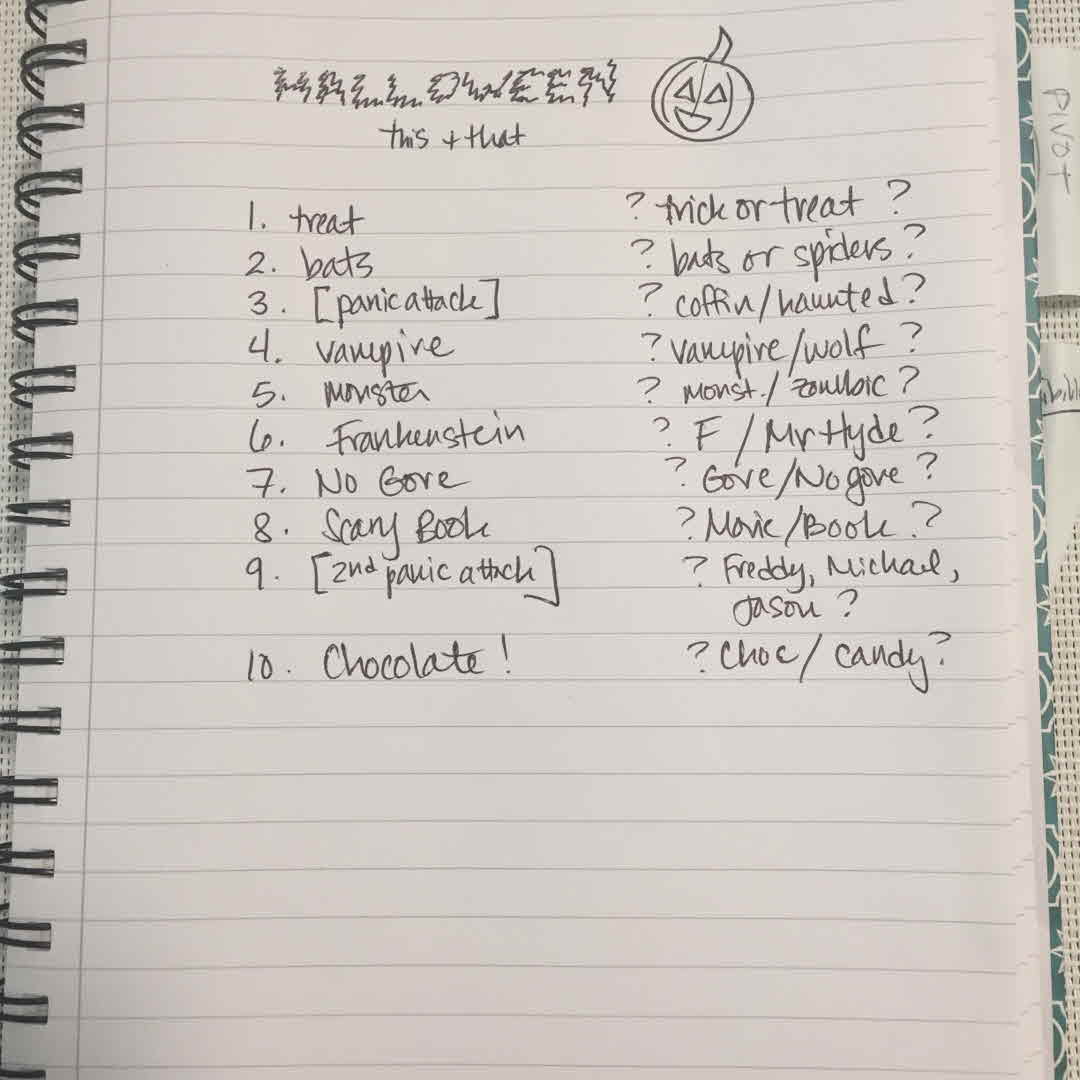 HALLOWEEN
this + that
1. treat ? trick or treat ?
2. bats ? bats or spiders ?
3. [panic attack] ? coffin/haunted ?
4. vampire ? vampire/wolf ?
5. monster ? monst./zombie ?
6. Frankenstein ? F / Mr Hyde ?
7. No Gore ? Gore/No gore ?
8. Scary Book ? Movie/Book ?
9. [2nd panic attack] ? Freddy, Michael,
Jason ?
10. Chocolate ! ? Choc/candy ?
PIVOT